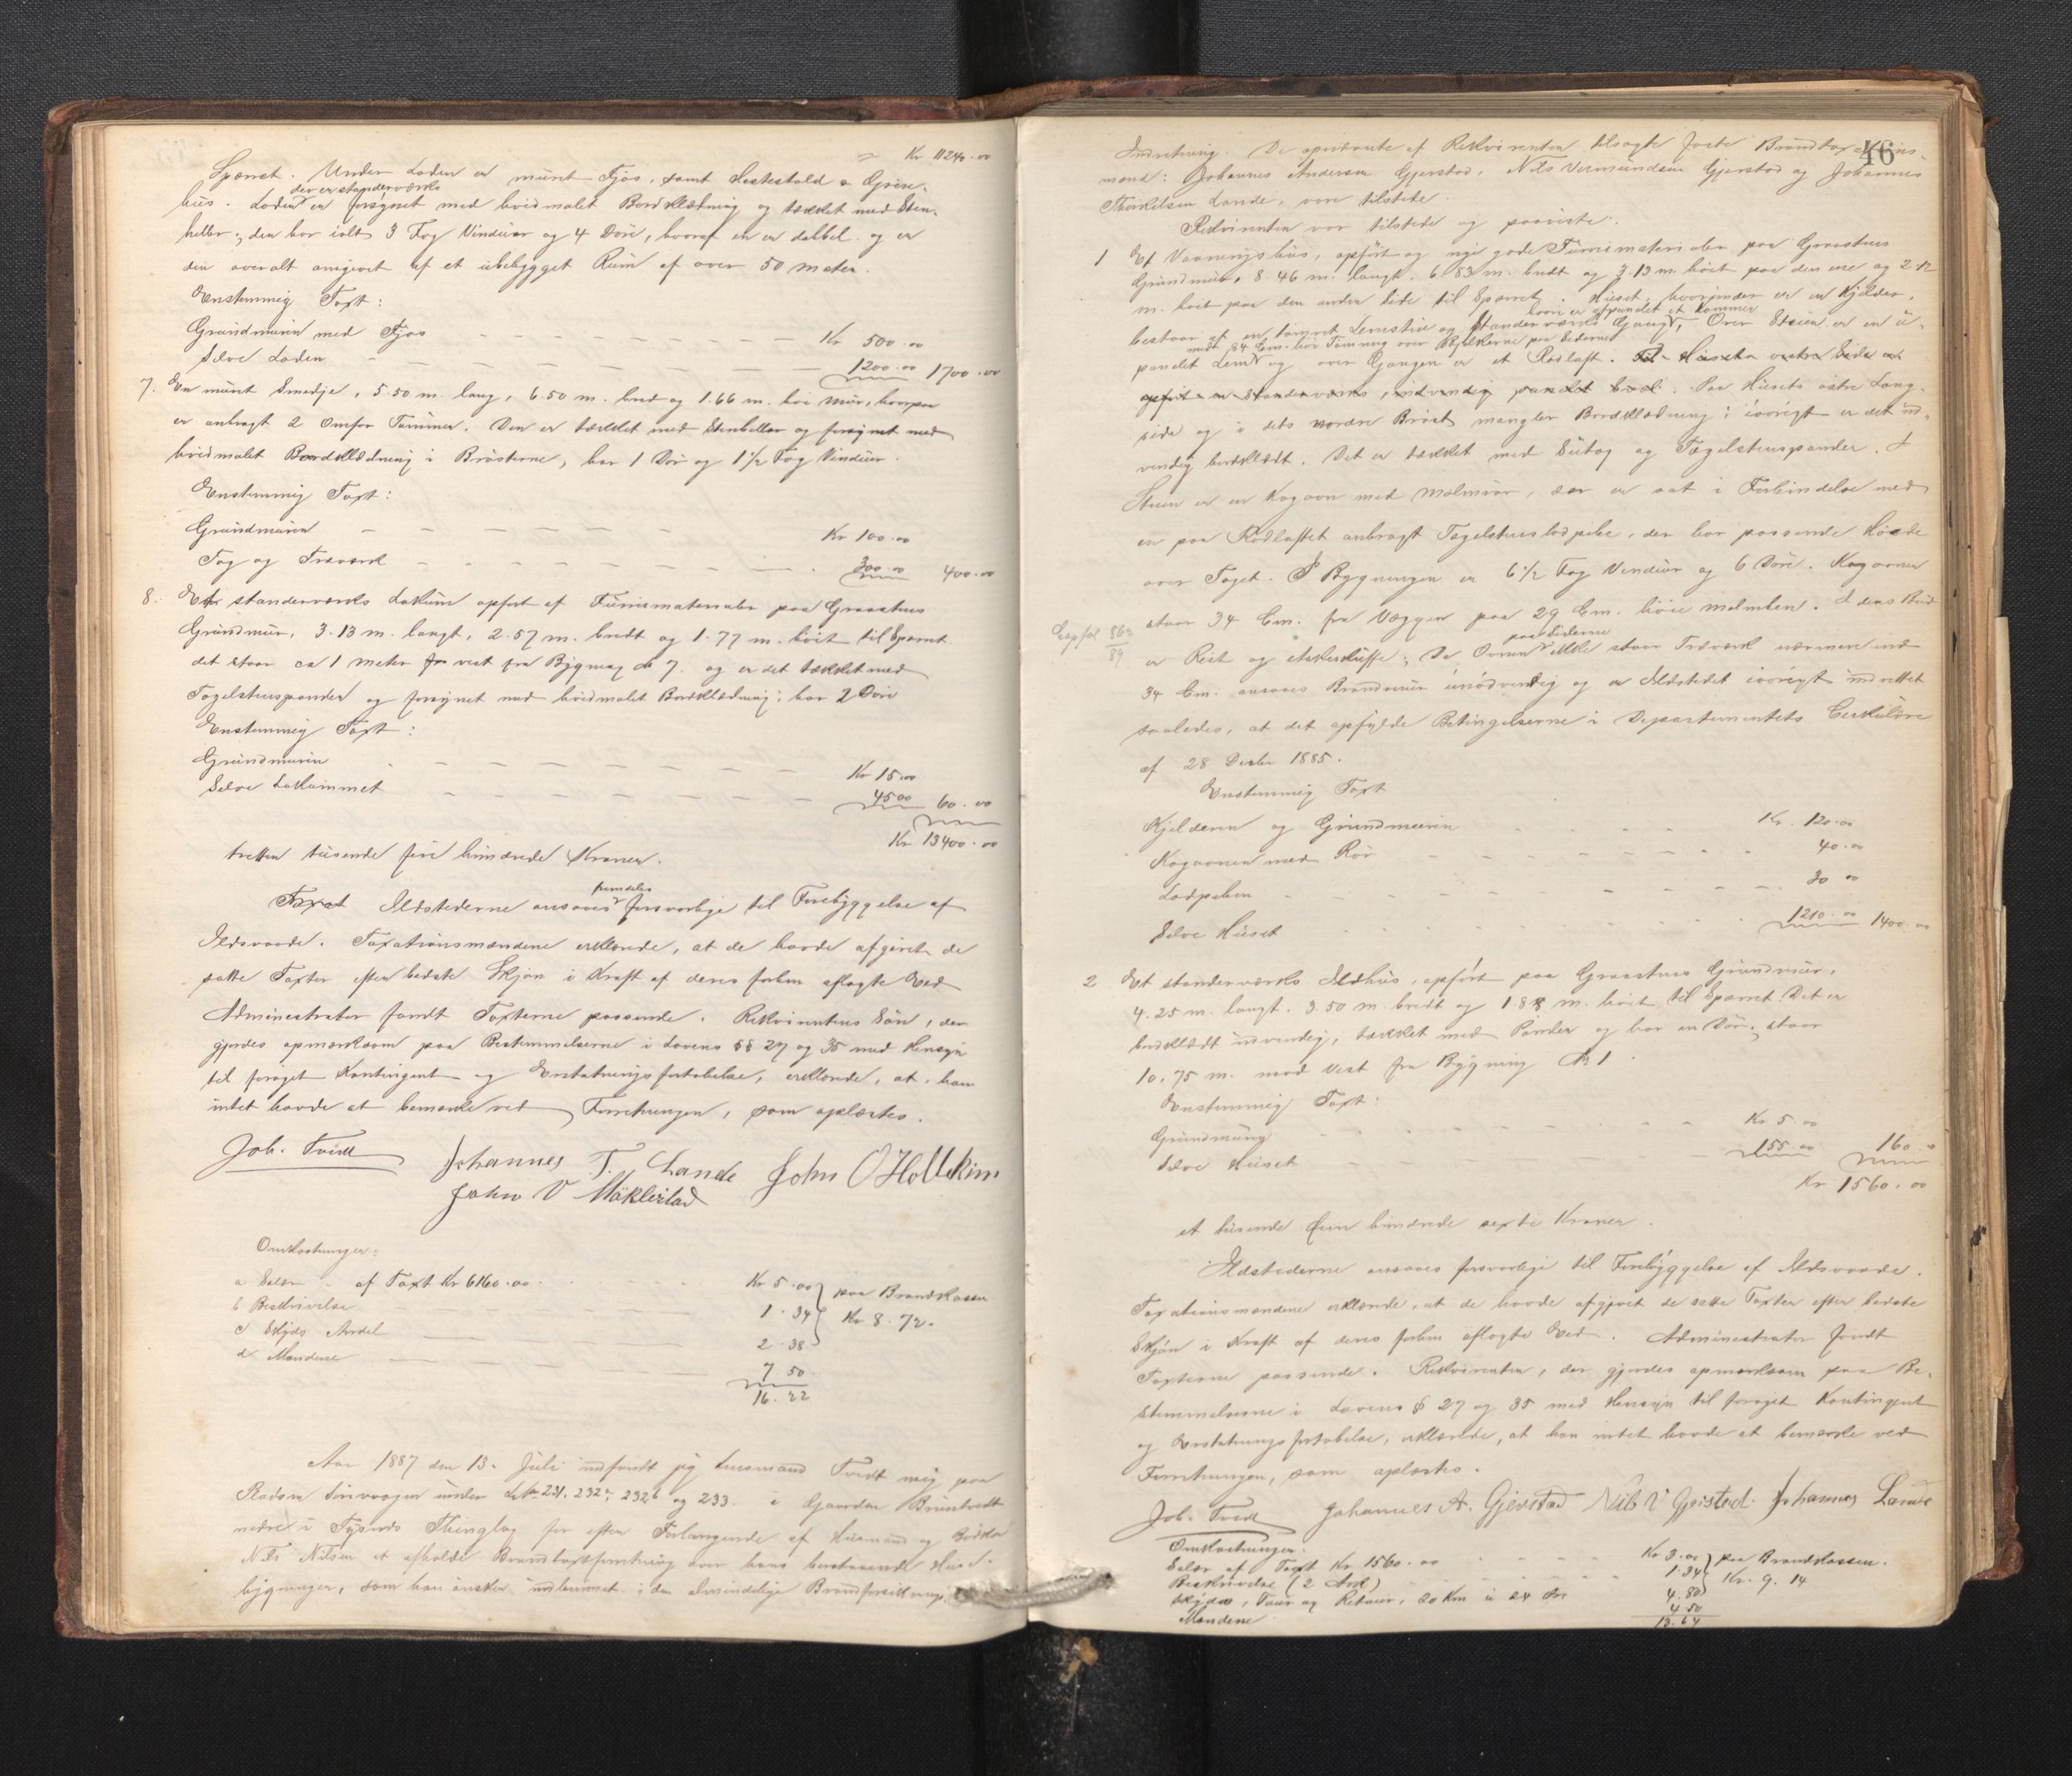 Kr 11240.00
Sparret. Under Laden er muret Fjøs, samt Hestestald & Grise-
der er standerværks
hus. Laden er forsynet med hvidmalet Bordklædning og tækket med Sten-
heller; den har ialt 3 Fag Vinduer og 4 Döre, hvoraf en er dobbel og er
den overalt omgivet af et ubebygget Rum af over 50 meter.
Enstemmig Taxt:
Grundmuren med Fjøs Kr 500.00
Selve Laden 1200.00 1700.00
7. En muret Smedje, 5.50 m. lang, 6.50 m. bred og 1.66 m. høi Mur, hvorpaa
er anbragt 2 Omfar Tømmer. Den er tækket med Stenheller og forsynet med
hvidmalet Bordklædning i Brösterne, har 1 Dör og 1 1/2 Fag Vinduer.
Enstemmig Taxt:
Grundmuren Kr 100.00
Tag og Træværk 300.00 400.00
8. Et standerværks Lokum opført af Furumaterialer paa Graastens
Grundmur, 3.13 m. langt, 2.57 m. bredt og 1.77 m. höit til Sparret
det staar ca 1 meter fra vest fra Bygning No 7. og er det tækket med
Tagelstenspander og forsynet med hvidmalet Bordklædning; har 2 Döre
Enstemmig Taxt:
Grundmuren Kr 15.00
Selve Lokummet 45.00 60.00
Kr 13400.00
tretten tusende fire hundrede Kroner.
fremdeles
Taxat Ildstederne ansaaes forsvarlige til Forebyggelse af
Ildsvaade. Taxationsmændene erklærede, at de havde afgivet de
satte Taxter efter bedste Skjøn i Kraft af deres forhen aflagte Ed
Administrator fandt Taxterne passende. Rekvirentens Sön, der
gjordes opmærksom paa Bestemmelserne i Lovens §§ 27 og 35 med Hensyn
til forøget Kontingent og Erstatningsfortabelse, erklærede, at han
intet havde at bemærke ved Forretningen, som oplæstes.
Joh. Tvedt Johannes T. Lande John O Holdhim
John V Møklestad
Omkostninger:
a Salær af Taxt Kr 6160.00 Kr 5.00 paa Brandkassen
b Beskrivelse 1.34 Kr 8.72.
c Skyds Andel 2.38
d Mændene 7.50
16.22
Aar 1887 den 13. Juli indfandt jeg Lensmand Tvedt mig paa
Pladsen Sørvaagen under L.No 231, 232a, 232b og 233 i Gaarden Bruntvedt
nedre i Tysnes Thinglag for efter Forlangende af Husmand og Bödker
Nils Nilsen at afholde Brandtaxtforretning over hans benævnte Hus-
bygninger, som han ønsker indlemmet i den almindelige Brandforsikrings
46
Indretning. De opnævnte af Rekvirenten tilsagte faste Brandtaxations-
mænd: Johannes Andersen Gjerstad, Nils Vermundsen Gjerstad og Johannes
Thorkelsen Lande, vare tilstede.
Rekvirenten var tilstede og paaviste:
1 Et Vaaningshus, opført og nye gode Furumaterialer paa Graastens
Grundmur, 8.46 m. langt, 6.83 m. bredt og 3.13 m. höit paa den ene og 2.12
m. höit paa den anden Side til Sparret. Huset, hvorunder er en Kjelder,
hvori er afpanelet et Kammer
bestaar af en tømret Lemstue og Standerværks Gang, Over Stuen er en u-
med 84 Cm. höi Tømring over Bjelkerne paa Siderne
panelet Lem og over Gangen er et Rodloft. Til Husets vestre Side er
opført en Standerværks, indvendig panelet Bod. Paa Husets østre Lang-
side og i dets nordre Bröst mangler Bordklædning; iøvrigt er det ud-
vendig bordklædt. Det er tækket med Sutag og Tagelstenspander. I
Stuen er en Kogovn med malmrør, der er sat i Forbindelse med
en paa Rodloftet anbragt Tagelstenslodpibe, der har passende Höide
over Taget. I Bygningen er 6 1/2 Fag Vinduer og 6 Döre. Kogovnen
staar 34 Cm. fra Væggen paa 29 Cm. höie Malmben. I dens Bund
paa Siderne
er Rist og Askeskuffe; Da Ovnen ikke staar Træværk nærmere end
34 Cm. ansaaes Brandmur unødvendig og er Ildstedet iøvrigt indrettet
saaledes, at det opfylde Betingelserne i Departementets Cirkulære
af 28 Decbr 1885.
Enstemmig Taxt
Kjelderen og Grundmuren Kr. 120.00
Kogovnen med Rör 40.00
Lodpiben 30 00
Selve Huset 1210.00 1400.00
2 Et standerværks Ildhus, opført paa Graastens Grundmur,
4.25 m. langt, 3.50 m. bredt og 1.88 m. höit til Sparret Det er
bordklædt udvendig, tækket med Pander og har en Dör; staar
10.75 m. mod vest fra Bygning No 1.
Enstemmig Taxt:
Grundmuren Kr 5.00
Selve Huset 155.00 160.
Kr 1560.00
et tusende fem hundrede sexti Kroner.
Ildstederne ansaaes forsvarlige til Forebyggelse af Ildsvaade.
Taxationsmændene erklærede, at de havde afgivet de satte Taxter efter bedste
Skjön i Kraft af deres forhen aflagte Ed. Administrator fandt
Taxterne passende. Rekvirenten, der gjordes opmærksom paa Be-
stemmelserne i Lovens § 27 og 35 med Hensyn til forøget Kontingent
og Erstatningsfortabelse, erklærede, at han intet havde at bemærke ved
Forretningen, som oplæstes.
Joh. Tvedt Johannes A. Gjerstad Nils V Gjerstad Johannes Lande
Omkostninger:
Salær af Taxt Kr. 1560.00 Kr 3.00 paa Brandkassen.
Beskrivelse (2 Ark) 1.34 Kr. 9.14
Skyds, Tour og Retour, 20 Km à 24 Øre 4.80
Mændene 4.50
13.64